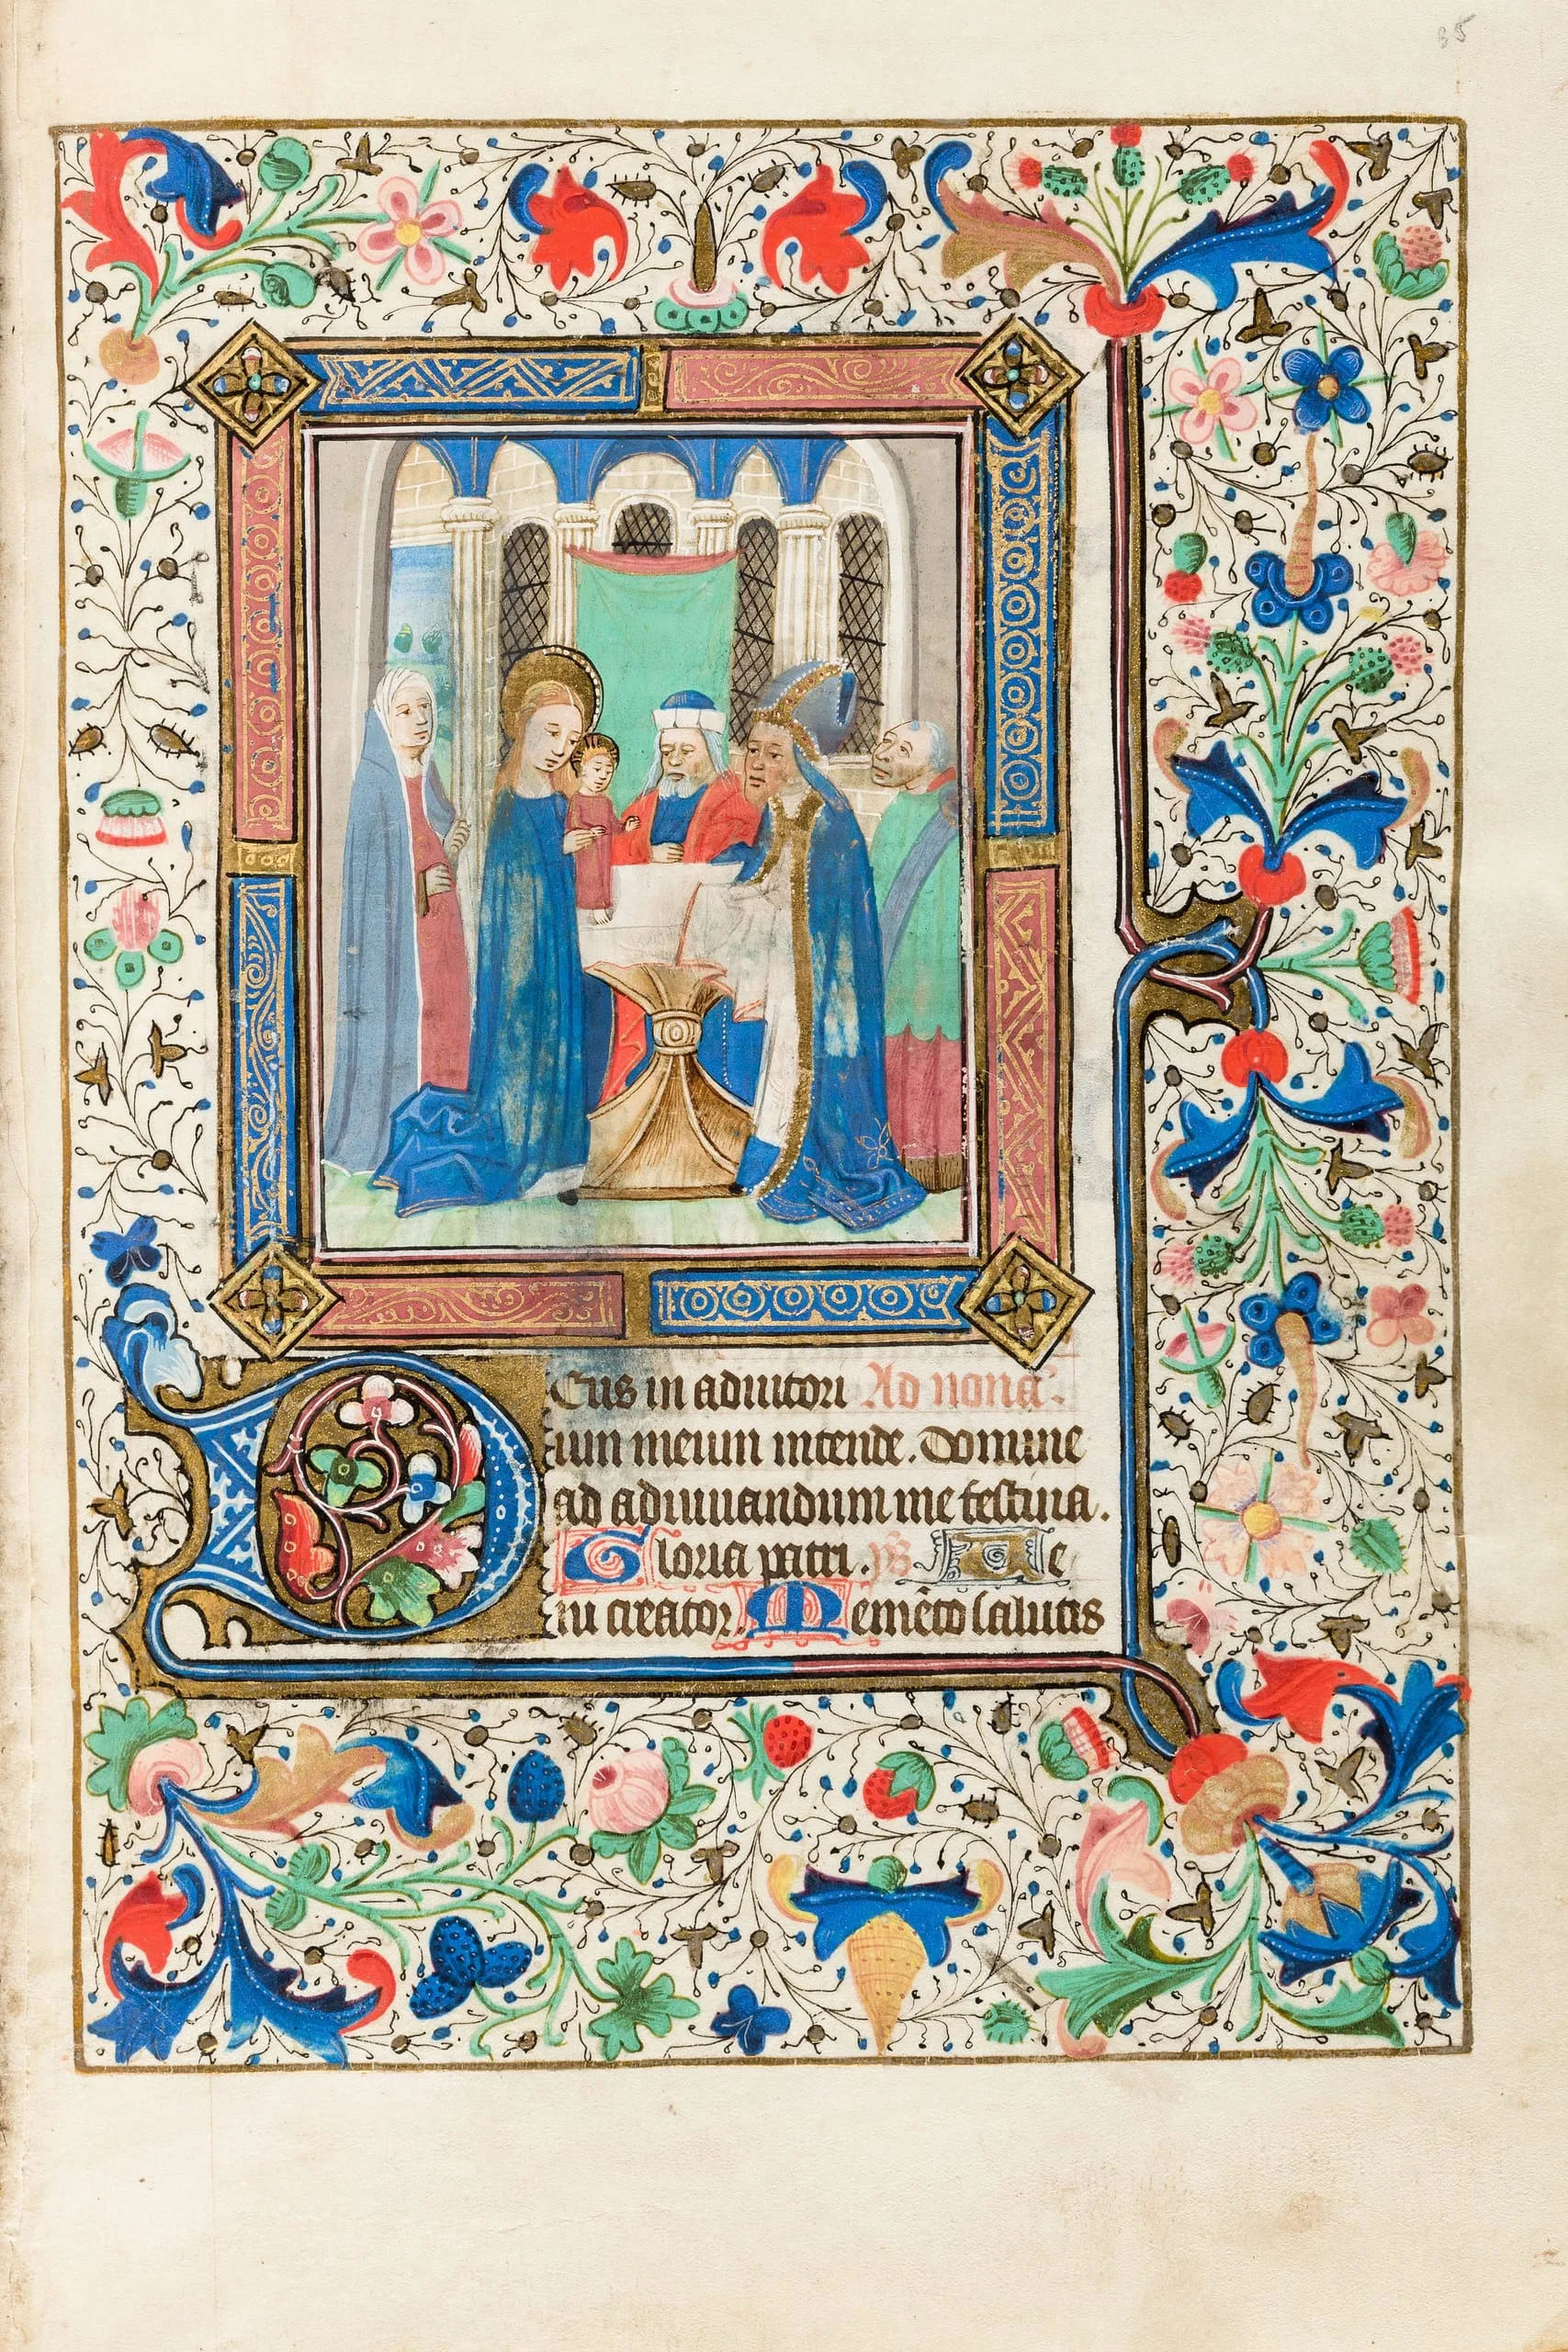 35
Deus in adiutori Ad nonā.
um meum intende. Domine
ad adiuuandum me festina.
Gloria patri. ps̄ Me
nu creator. Memēto salutis